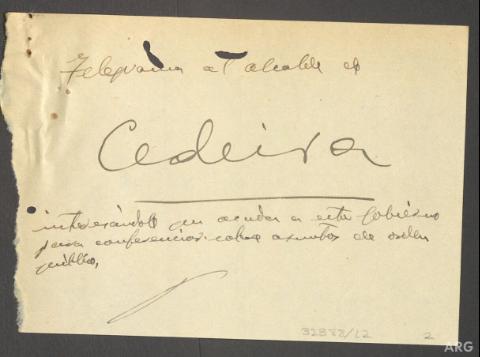 Telegrama al alcalde de
Cedeira
interesándole que acuda a este Gobierno
para conferenciar sobre asuntos de orden
público,
32388/12
2
ARG